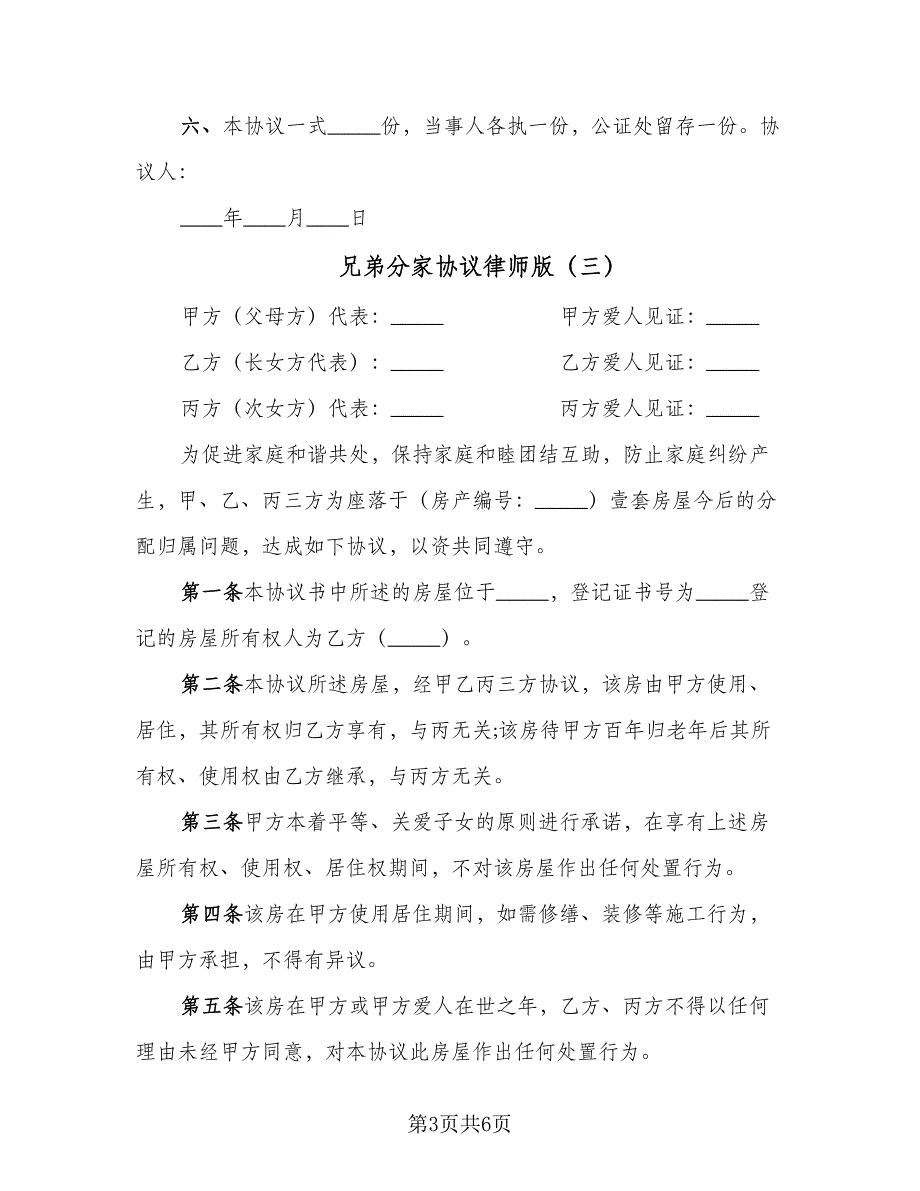 六、本协议一式_____份，当事人各执一份，公证处留存一份。协
议人：
____年____月____日
兄弟分家协议律师版（三）
甲方（父母方）代表：_____ 甲方爱人见证：_____
乙方（长女方代表）：_____ 乙方爱人见证：_____
丙方（次女方）代表：_____ 丙方爱人见证：_____
为促进家庭和谐共处，保持家庭和睦团结互助，防止家庭纠纷产
生，甲、乙、丙三方为座落于（房产编号：_____）壹套房屋今后的分
配归属问题，达成如下协议，以资共同遵守。
第一条本协议书中所述的房屋位于_____，登记证书号为_____登
记的房屋所有权人为乙方（_____）。
第二条本协议所述房屋，经甲乙丙三方协议，该房由甲方使用、
居住，其所有权归乙方享有，与丙无关;该房待甲方百年归老年后其所
有权、使用权由乙方继承，与丙方无关。
第三条甲方本着平等、关爱子女的原则进行承诺，在享有上述房
屋所有权、使用权、居住权期间，不对该房屋作出任何处置行为。
第四条该房在甲方使用居住期间，如需修缮、装修等施工行为，
由甲方承担，不得有异议。
第五条该房在甲方或甲方爱人在世之年，乙方、丙方不得以任何
理由未经甲方同意，对本协议此房屋作出任何处置行为。
第3页共6页